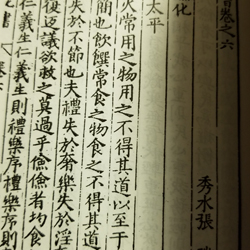 書卷之六
秀水張
化
太平
火常用之物用之不得其道以至于
簡也飲饌常食之物食之不得其
失於不節也夫禮失於奢樂失於淫
復返議欲救之莫過乎儉儉者均食
仁義生仁義生則禮樂序禮樂序則
書